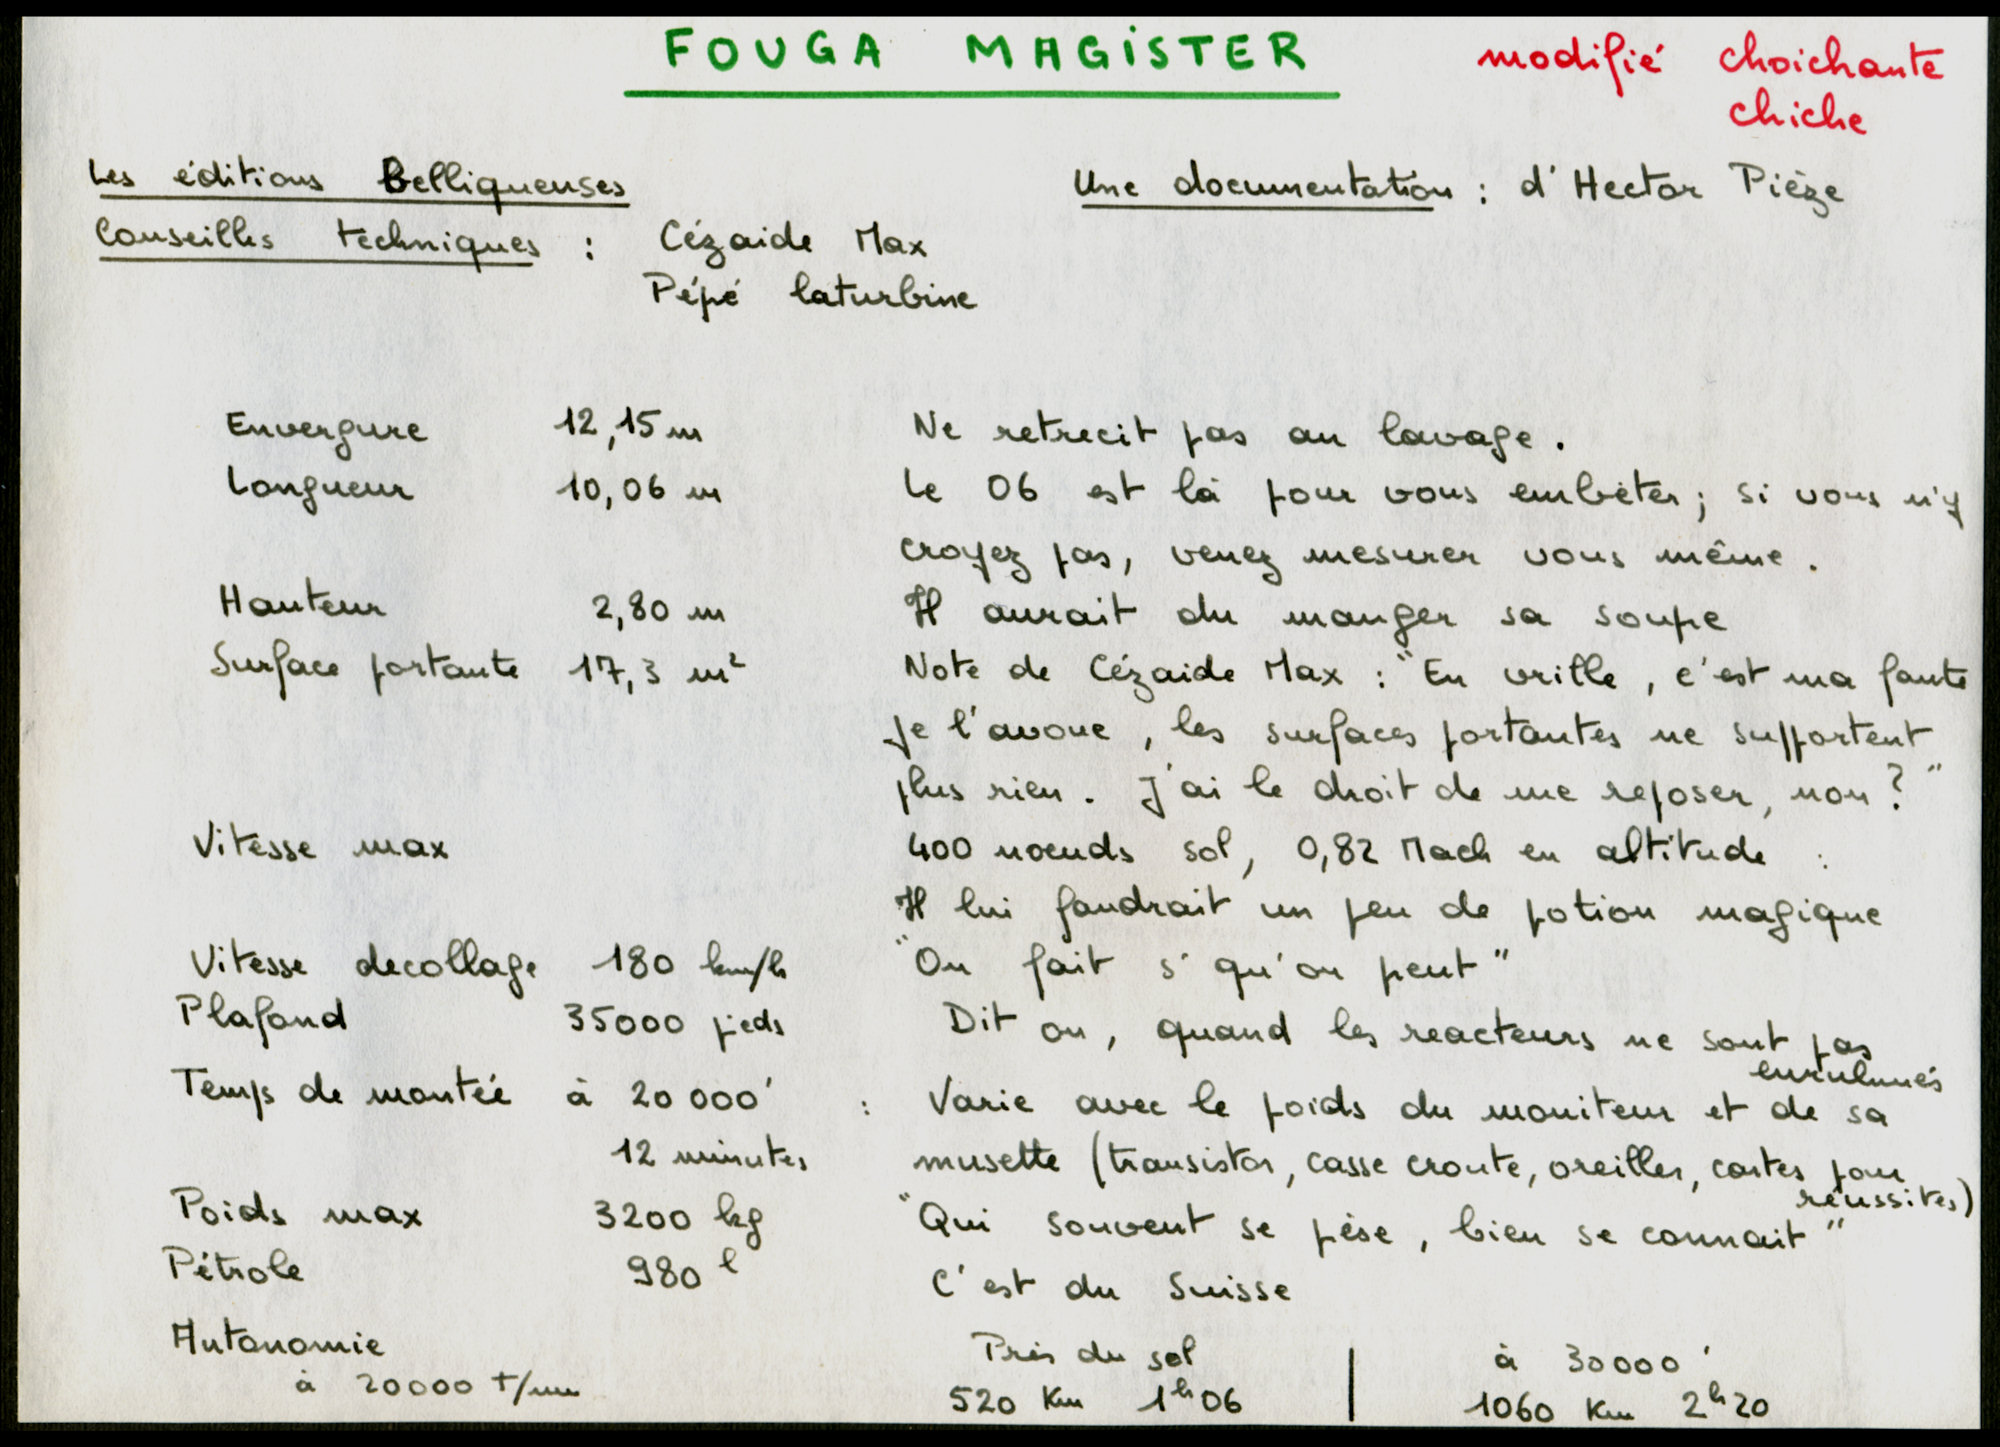 FOUGA MAGISTER
modifié choichante
chiche
Les éditions Belliqueuses
Une documentation : d'Hector Pièze
Conseilles techniques : Cézaide Max
Pépé laturbine
Envergure 12,15 m Ne retrecit pas au lavage.
Longueur 10,06 m Le 06 est là pour vous embêter ; si vous n'y
croyez pas, venez mesurer vous même.
Hauteur 2,80 m Il aurait du manger sa soupe
Surface portante 17,3 m² Note de Cézaide Max : "En vrille, c'est ma faute
je l'avoue, les surfaces portantes ne supportent
plus rien. J'ai le droit de me reposer, non ?"
Vitesse max 400 noeuds sol, 0,82 Mach en altitude :
Il lui faudrait un peu de potion magique
Vitesse decollage 180 km/h "On fait s' qu'on peut"
Plafond 35000 pieds Dit on, quand les reacteurs ne sont pas
enrhumés
Temps de montée à 20 000' : Varie avec le poids du moniteur et de sa
12 minutes musette (transistor, casse croute, oreiller, cartes pour
réussites)
Poids max 3200 kg "Qui souvent se pèse, bien se connait"
Pétrole 980 l C'est du Suisse
Autonomie Près du sol | à 30000'
à 20000 t/mn 520 Km 1h06 | 1060 Km 2h20